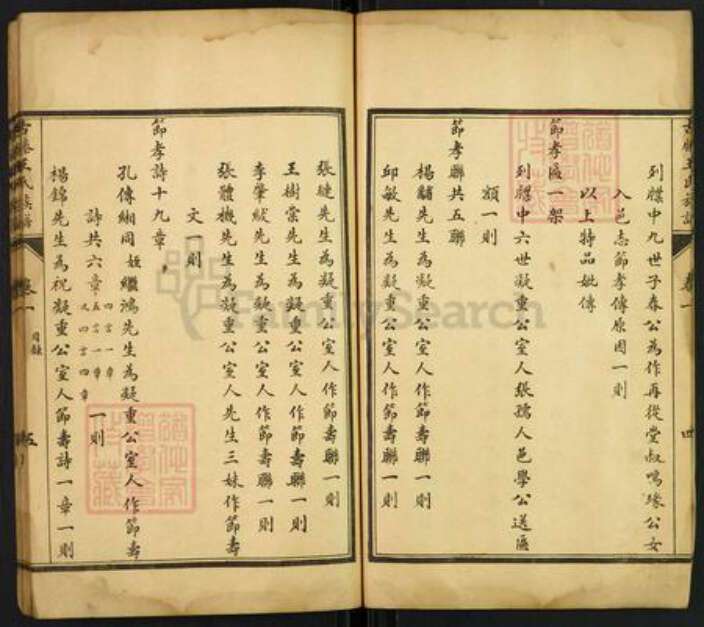 列牒中九世子春公為作再從堂叔鳴緣公女
入邑志節孝傳原因一則
以上特品妣傳
節孝匾一架
列牒中六世凝重公室人張孺人邑學公送匾
額一則
節孝聯共五聯
楊黼先生為凝重公室人作節壽聯一則
邱敏先生為凝重公室人作節壽聯一則
四
張璉先生為凝重公室人作節壽聯一則
王樹棠先生為凝重公室人作節壽聯一則
李肇紱先生為凝重公室人作節壽聯一則
張體機先生為凝重公室人先生三妹作節壽
文一則
節孝詩十九章
孔傳緗同姪繼鴻先生為凝重公室人作節壽
詩共六章 四言一章 五言一章 七言四章 一則
楊錦先生為祝凝重公室人節壽詩一章一則
卷一
目錄
五
FamilySearch